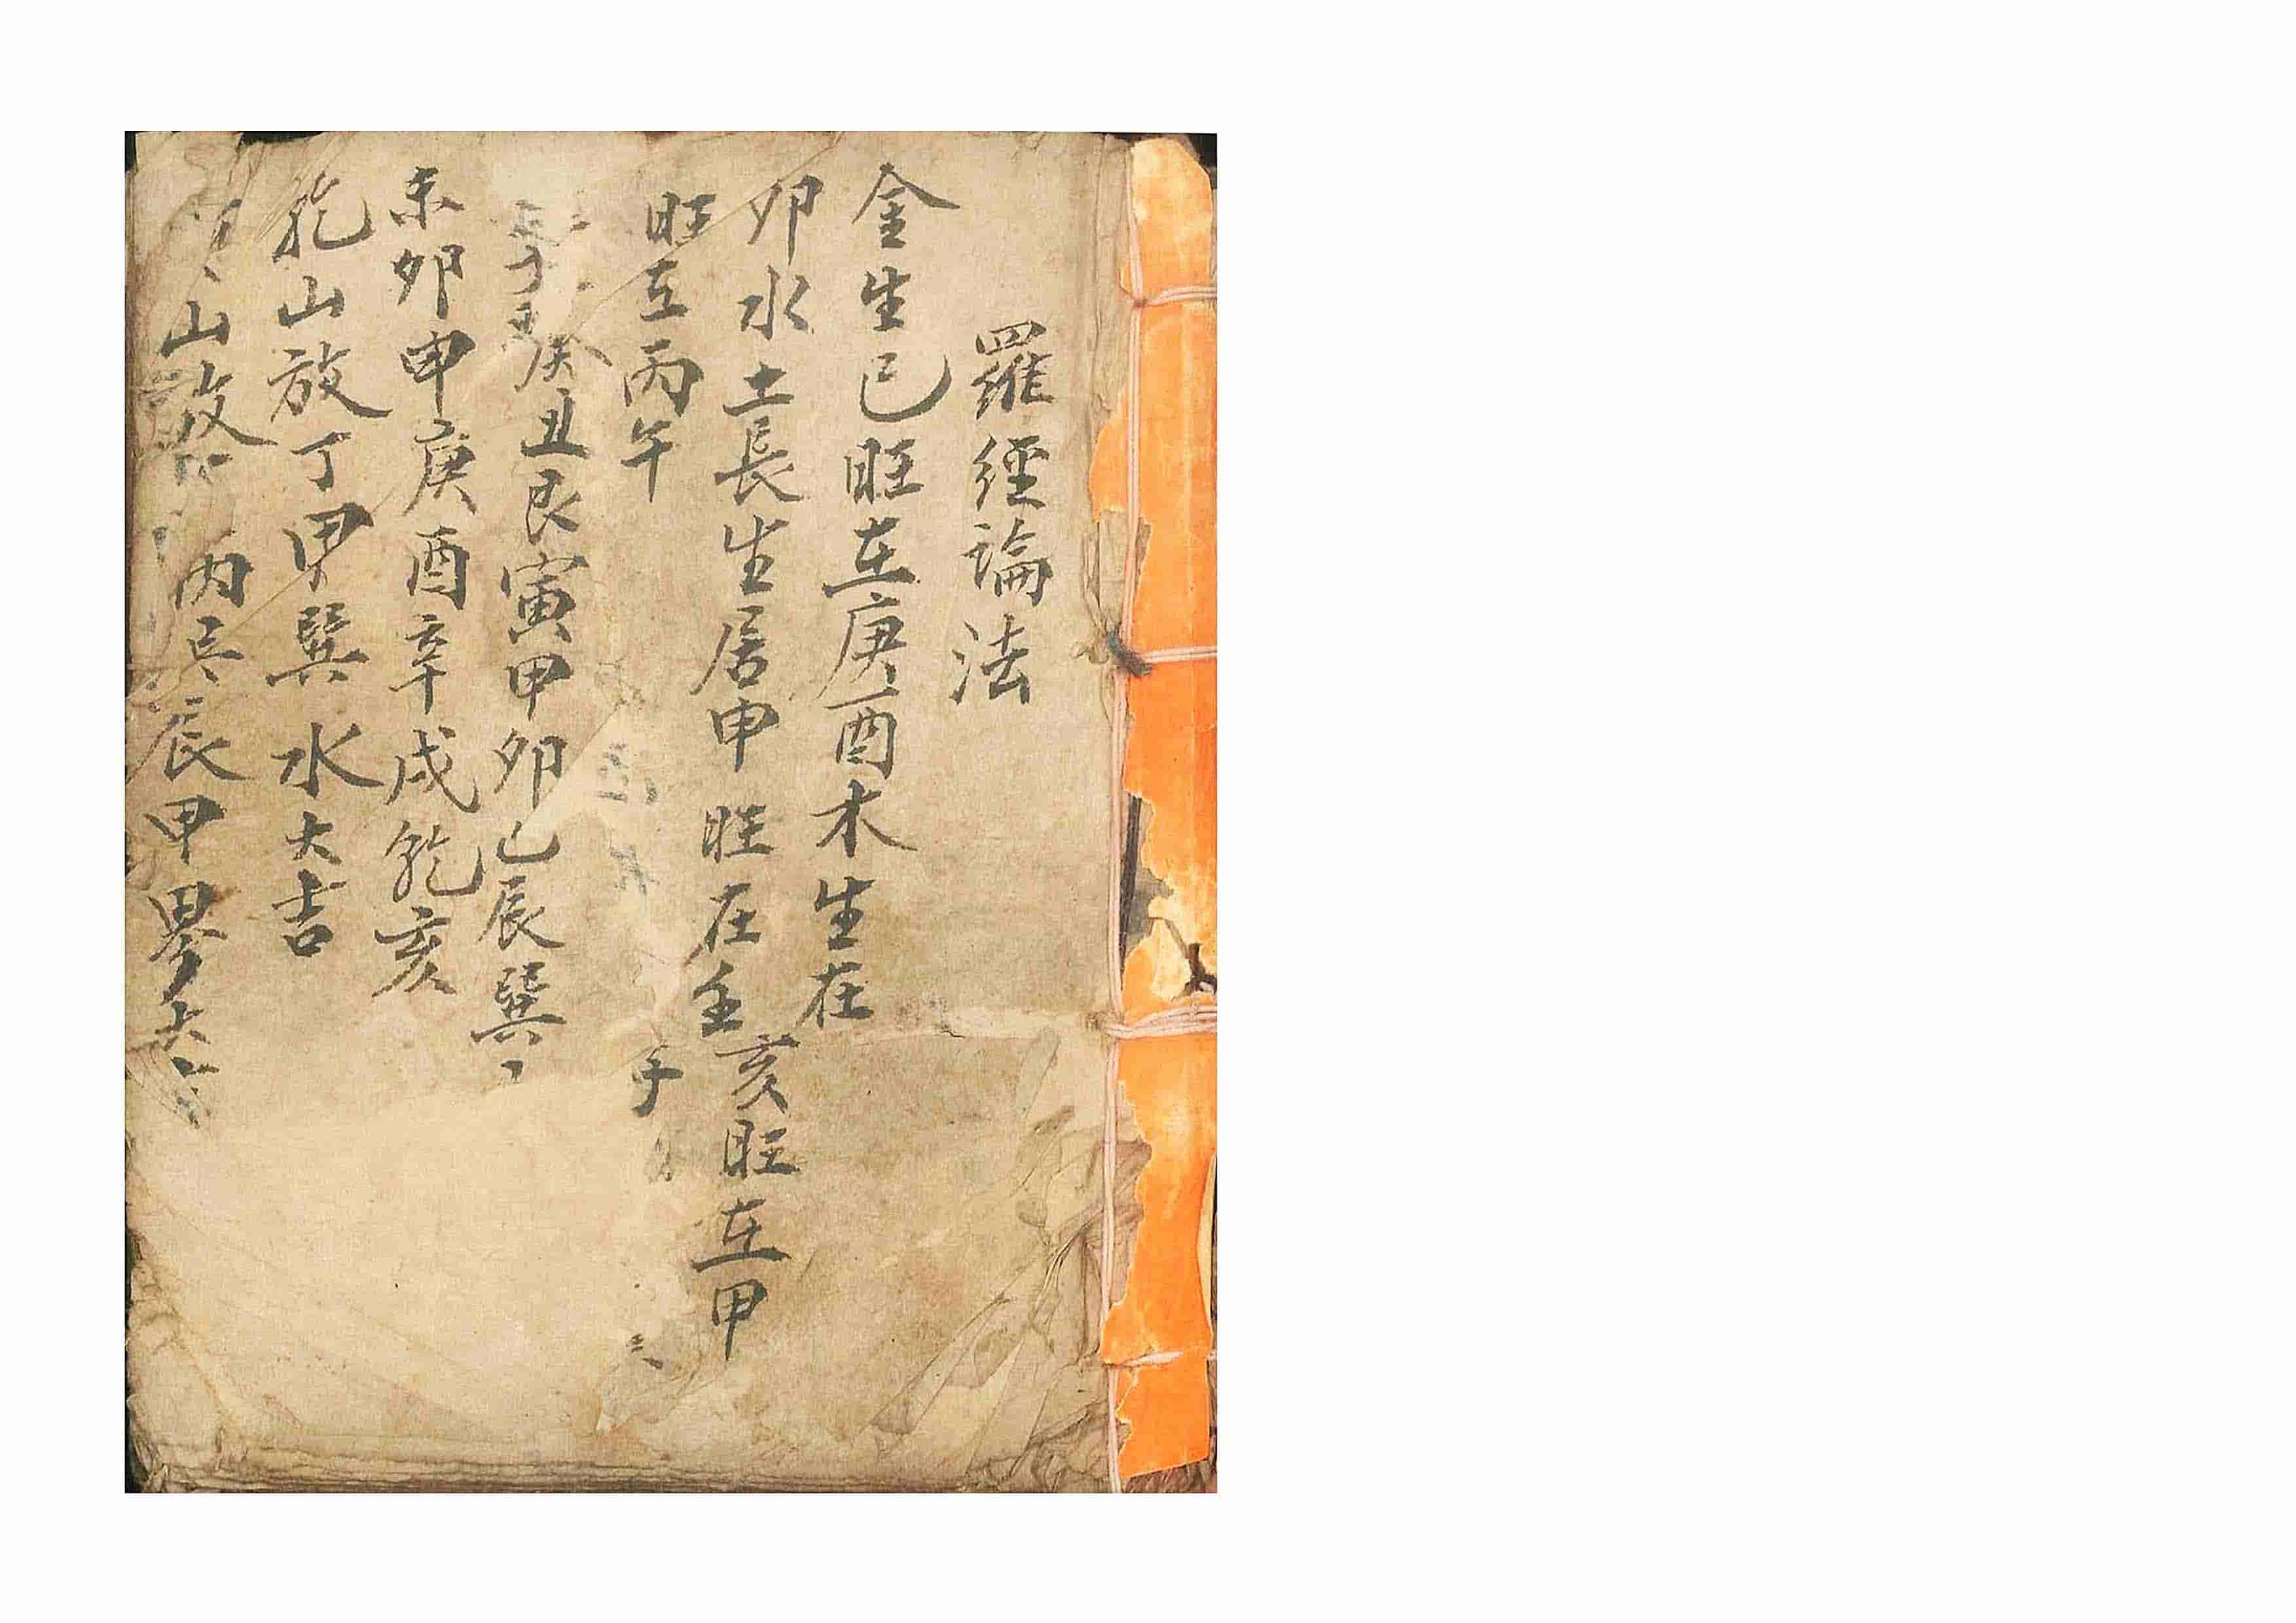 羅經論法
金生巳旺在庚酉木生在亥旺在甲
卯水土長生居申旺在壬子
旺在丙午
癸丑艮寅甲卯乙辰巽
未卯申庚酉辛戌乾亥
乾山放丁甲巽水大吉
山放丙辰甲